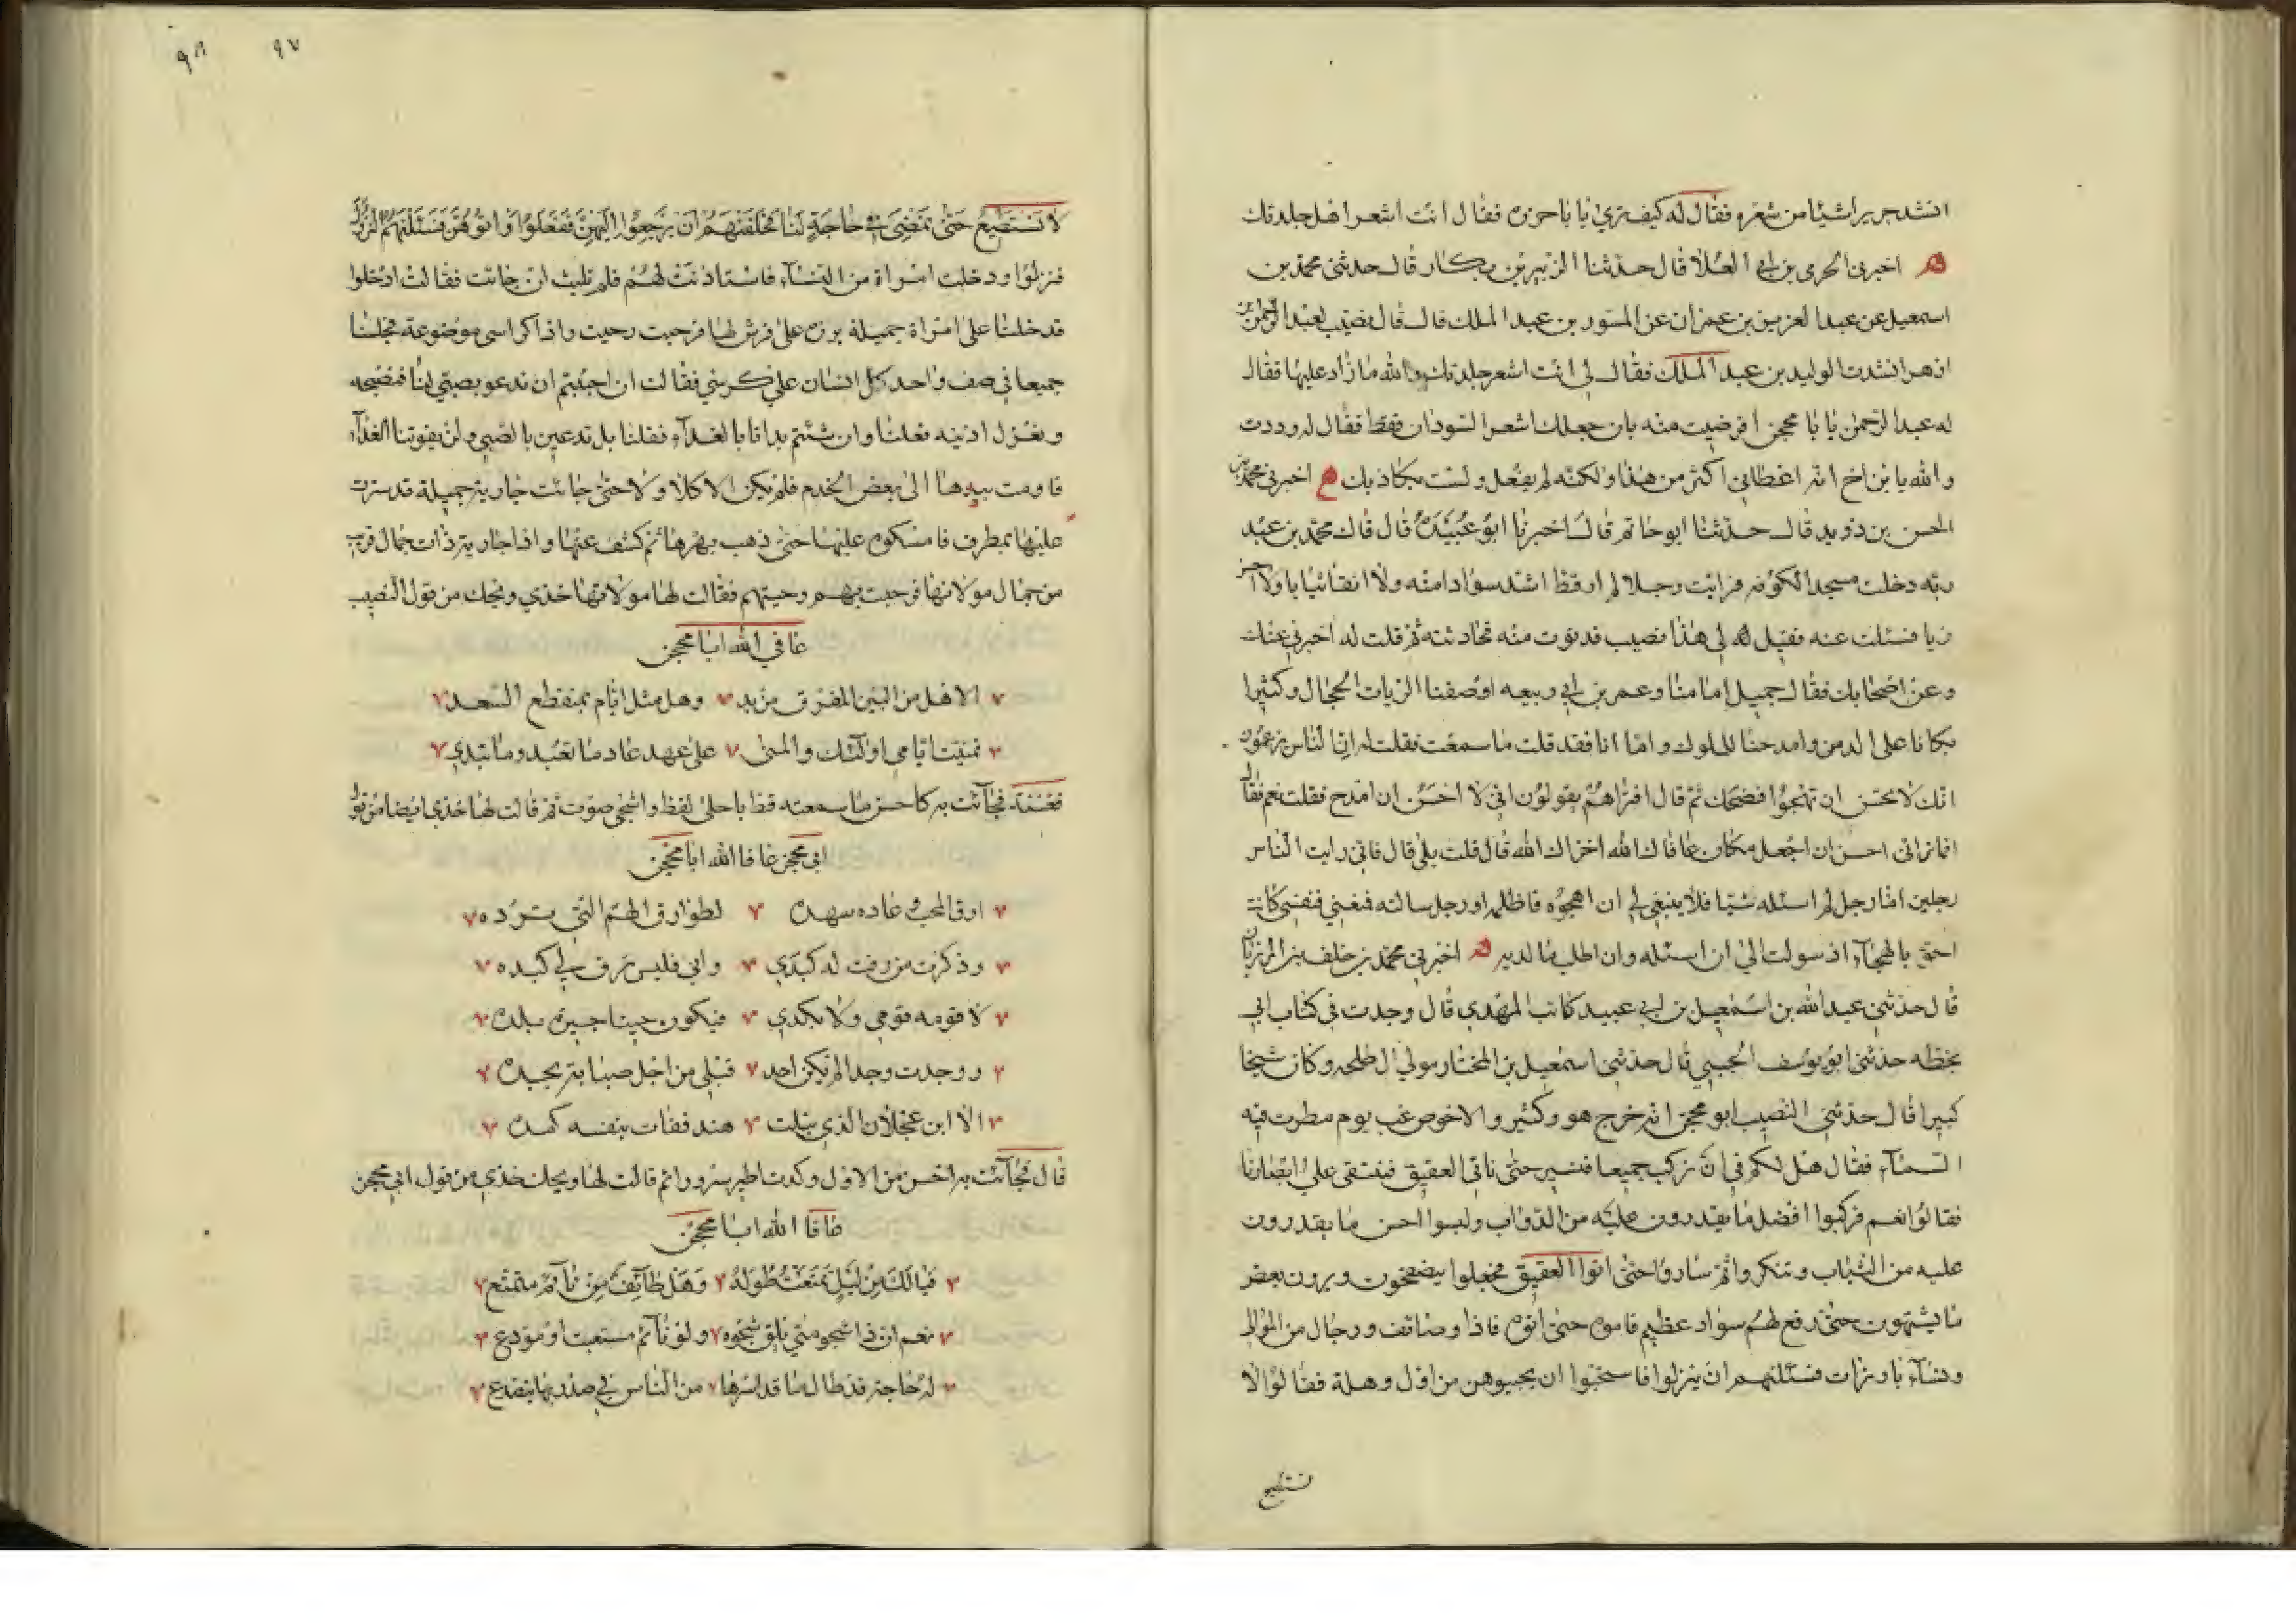 انشد جريرا شيئا من شعره فقال له كيف تري يا با حزره فقال انت اشعر اهل جلدتك
اخبرني الحرمي بن ابي العلا قال حدثنا الزبير بن بكار قال حدثني محمد بن
اسمعيل عن عبد العزيز بن عمران عن المسور بن عبد الملك قال قال نصيب لعبد الرحمن بن
ازهر انشدت الوليد بن عبد الملك فقال لي انت اشعر جلدتك والله ما زاد عليها فقال
له عبد الرحمن يا با محجن افرضيت منه بان جعلك اشعر السودان فقط فقال له وددت
والله يا بن اخ انه اعطاني اكثر من هذا ولكنه لم يفعل ولست بكاذبك اخبرني محمد بن
الحسن بن دويد قال حدثنا ابو حاتم قال اخبرنا ابو عبيدة قال قال محمد بن عبد
ربه دخلت مسجد الكوفه فرايت رجلا لم ار قط اشد سوادا منه ولا انقا ثيابا ولا احسن
زيا فسئلت عنه فقيل لي هذا نصيب فدنوت منه فحادثته ثم قلت له اخبرني عنك
وعن اصحابك فقال جميل امامنا وعمر بن ابي ربيعه اوصفنا الربات الحجال وكثيرا
بكانا على الدمن وامدحنا للملوك واما انا فقد قلت ما سمعت فقلت له ان الناس يزعمون
انك لا تحسن ان تهجوا فضحك ثم قال افتراهم يقولون اني لا احسن ان امدح فقلت نعم فقال
افما تراني احسن ان اجعل مكان عافاك الله اخزاك الله قال قلت بلى قال فاني رايت الناس
رجلين اما رجل لم اسئله شيئا فلا ينبغي لي ان اهجوه فاظلمه او رجل سالته فمنعني فنفسي كانت
احق بالهجآء اذ سولت الي ان اسئله وان اطلب ما لديه اخبرني محمد بن خلف بن المرزبان
قال حدثني عبد الله بن اسمعيل بن ابي عبيد كاتب المهدي قال وجدت في كتاب ابي
بخطه حدثني ابو يوسف الجبيبي قال حدثني اسمعيل بن المختار مولي ال طلحه وكان شيخا
كبيرا قال حدثني النصيب ابو محجن انه خرج هو وكثير والاخوص غب يوم مطرت فيه
السمآء فقال هل لكم في ان نركب جميعا فنسير حتى ناتى العقيق فنتقى على ابصارنا
فقالوا نعم فركبوا افضل ما يقدرون عليه من الدواب ولبسوا احسن ما يقدرون
عليه من الثياب وتنكروا ثم ساروا حتى اتوا العقيق فجعلوا يتصفحون ويرون بعض
ما يشتهون حتى رفع لهم سواد عظيم فاموه حتى اتوه فاذا وصائف ورجال من الموالي
ونسآء بارزات فسئلنهم ان ينزلوا فاستحبوا ان يجيبوهن من اول وهلة فقالوا لا
نستطيع
٩٧
٩٨
لا نستطيع حتى نمضي في حاجة لنا فحلفنهم ان يرجعوا اليهن ففعلوا واتوهن فسئلنهم النزول
فنزلوا ودخلت امراة من النسآء فاستاذنت لهم فلم تلبث ان جائت فقالت ادخلوا
فدخلنا على امراة جميلة برزه على فرش لها فرحبت وحيت واذا كراسي موضوعة فجلسنا
جميعا في صف واحد كل انسان على كرسي فقالت ان احببتم ان ندعو بصبي لنا فنصيحه
ونعزل اذنيه فعلنا وان شئتم بدانا بالغدآء فقلنا بل تدعين بالصبي ولن يفوتنا الغدآء
فاومت بيدها الى بعض الخدم فلم يكن الا كلا ولا حتى جائت جارية جميلة قد سترت
عليها بمطرف فامسكوه عليها حتى ذهب بهرها ثم كشف عنها واذا جارية ذات جمال قريب
من جمال مولاتها فرحبت بهم وحيتهم فقالت لها مولاتها خذي ويحك من قول النصيب
عافي الله ابا محجن
الا هل من البين المفرق من بد وهل مثل ايام بمنقطع السعد
تمنيت ايامي اولئك والمنى على عهد عاد ما تعيد وما تبدي
فغنته فجآئت به كاحسن ما سمعته قط باحلى لفظ واشجى صوت ثم قالت لها خذي ايضا من قول
ابي محجن عافا الله ابا محجن
ارق المحب وعاده سهده لطوارق الهم التي ترده
وذكرت من رقت له كبدي وابى فليس ترق لي كبده
لا قومه قومي ولا بلدي فيكون حينا جيرة بلده
ووجدت وجدا لم يكن احد قبلي من اجل صبابة يجده
الا ابن عجلان الذي تبلت هند ففات بنفسه كمده
قال فجآئت به احسن من الاول وكدت اطير سرورا ثم قالت لها ويحك خذي من قول ابي محجن
عافا الله ابا محجن
فيا لك من ليل تمتعت طوله وهل طائف من نآئم متمتع
نعم ان ذا شجو متى يلق شجوه ولو نآئم مستعتب او مودع
له حاجة قد طال ما قد اسرها من الناس في صدر بها يتصدع